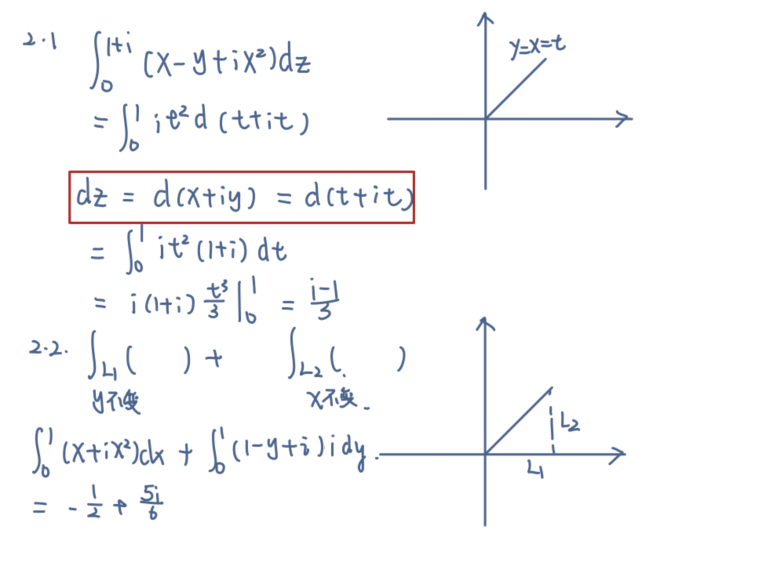 2.1 ∫₀¹⁺ⁱ (x-y+ix²)dz
y=x=t
= ∫₀¹ it² d(t+it)
dz = d(x+iy) = d(t+it)
= ∫₀¹ it²(1+i) dt
= i(1+i) t³/3 |₀¹ = (i-1)/3
2.2. ∫L₁( ) + ∫L₂(. )
y不变 x不变.
L₂
∫₀¹ (x+ix²)dx + ∫₀¹ (1-y+i)idy.
L₁
= -1/2 + 5i/6